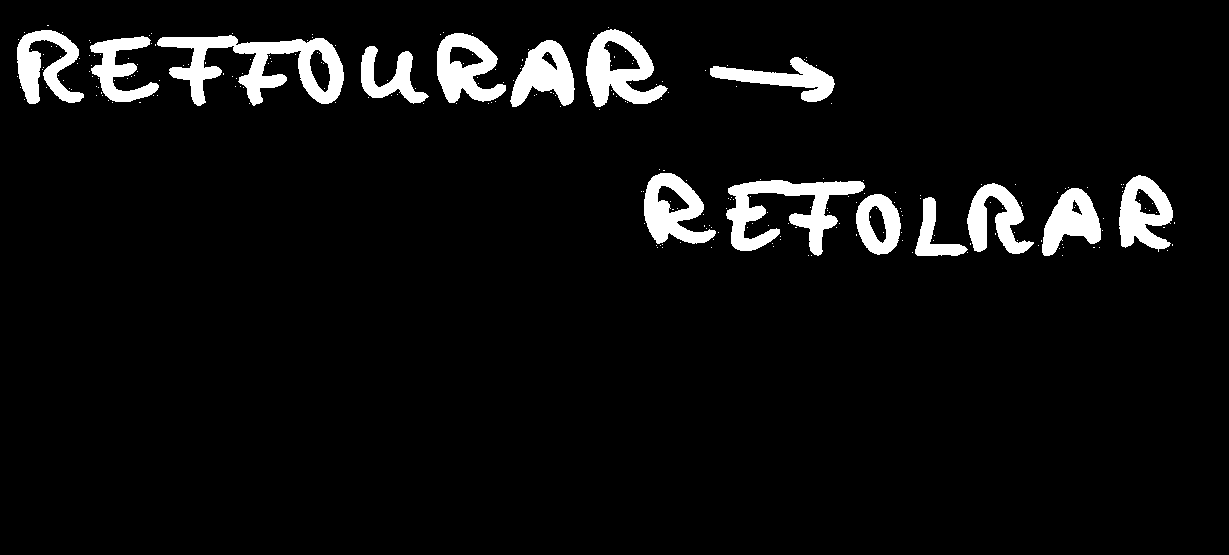 REFFOURAR →
REFOLRAR